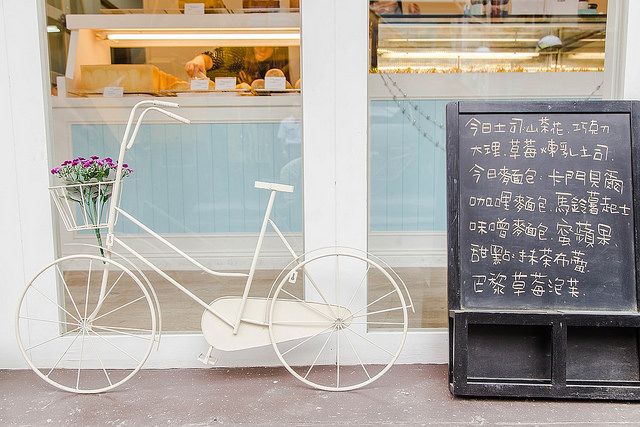 今日土司山茶花.巧克力
大理.草莓煉乳土司.
今日麥面包:卡門貝爾
咖哩麥面包.馬鈴薯起士
味噌麥面包.蜜蘋果.
甜點:抹茶布蕾.
巴黎草莓泡芙